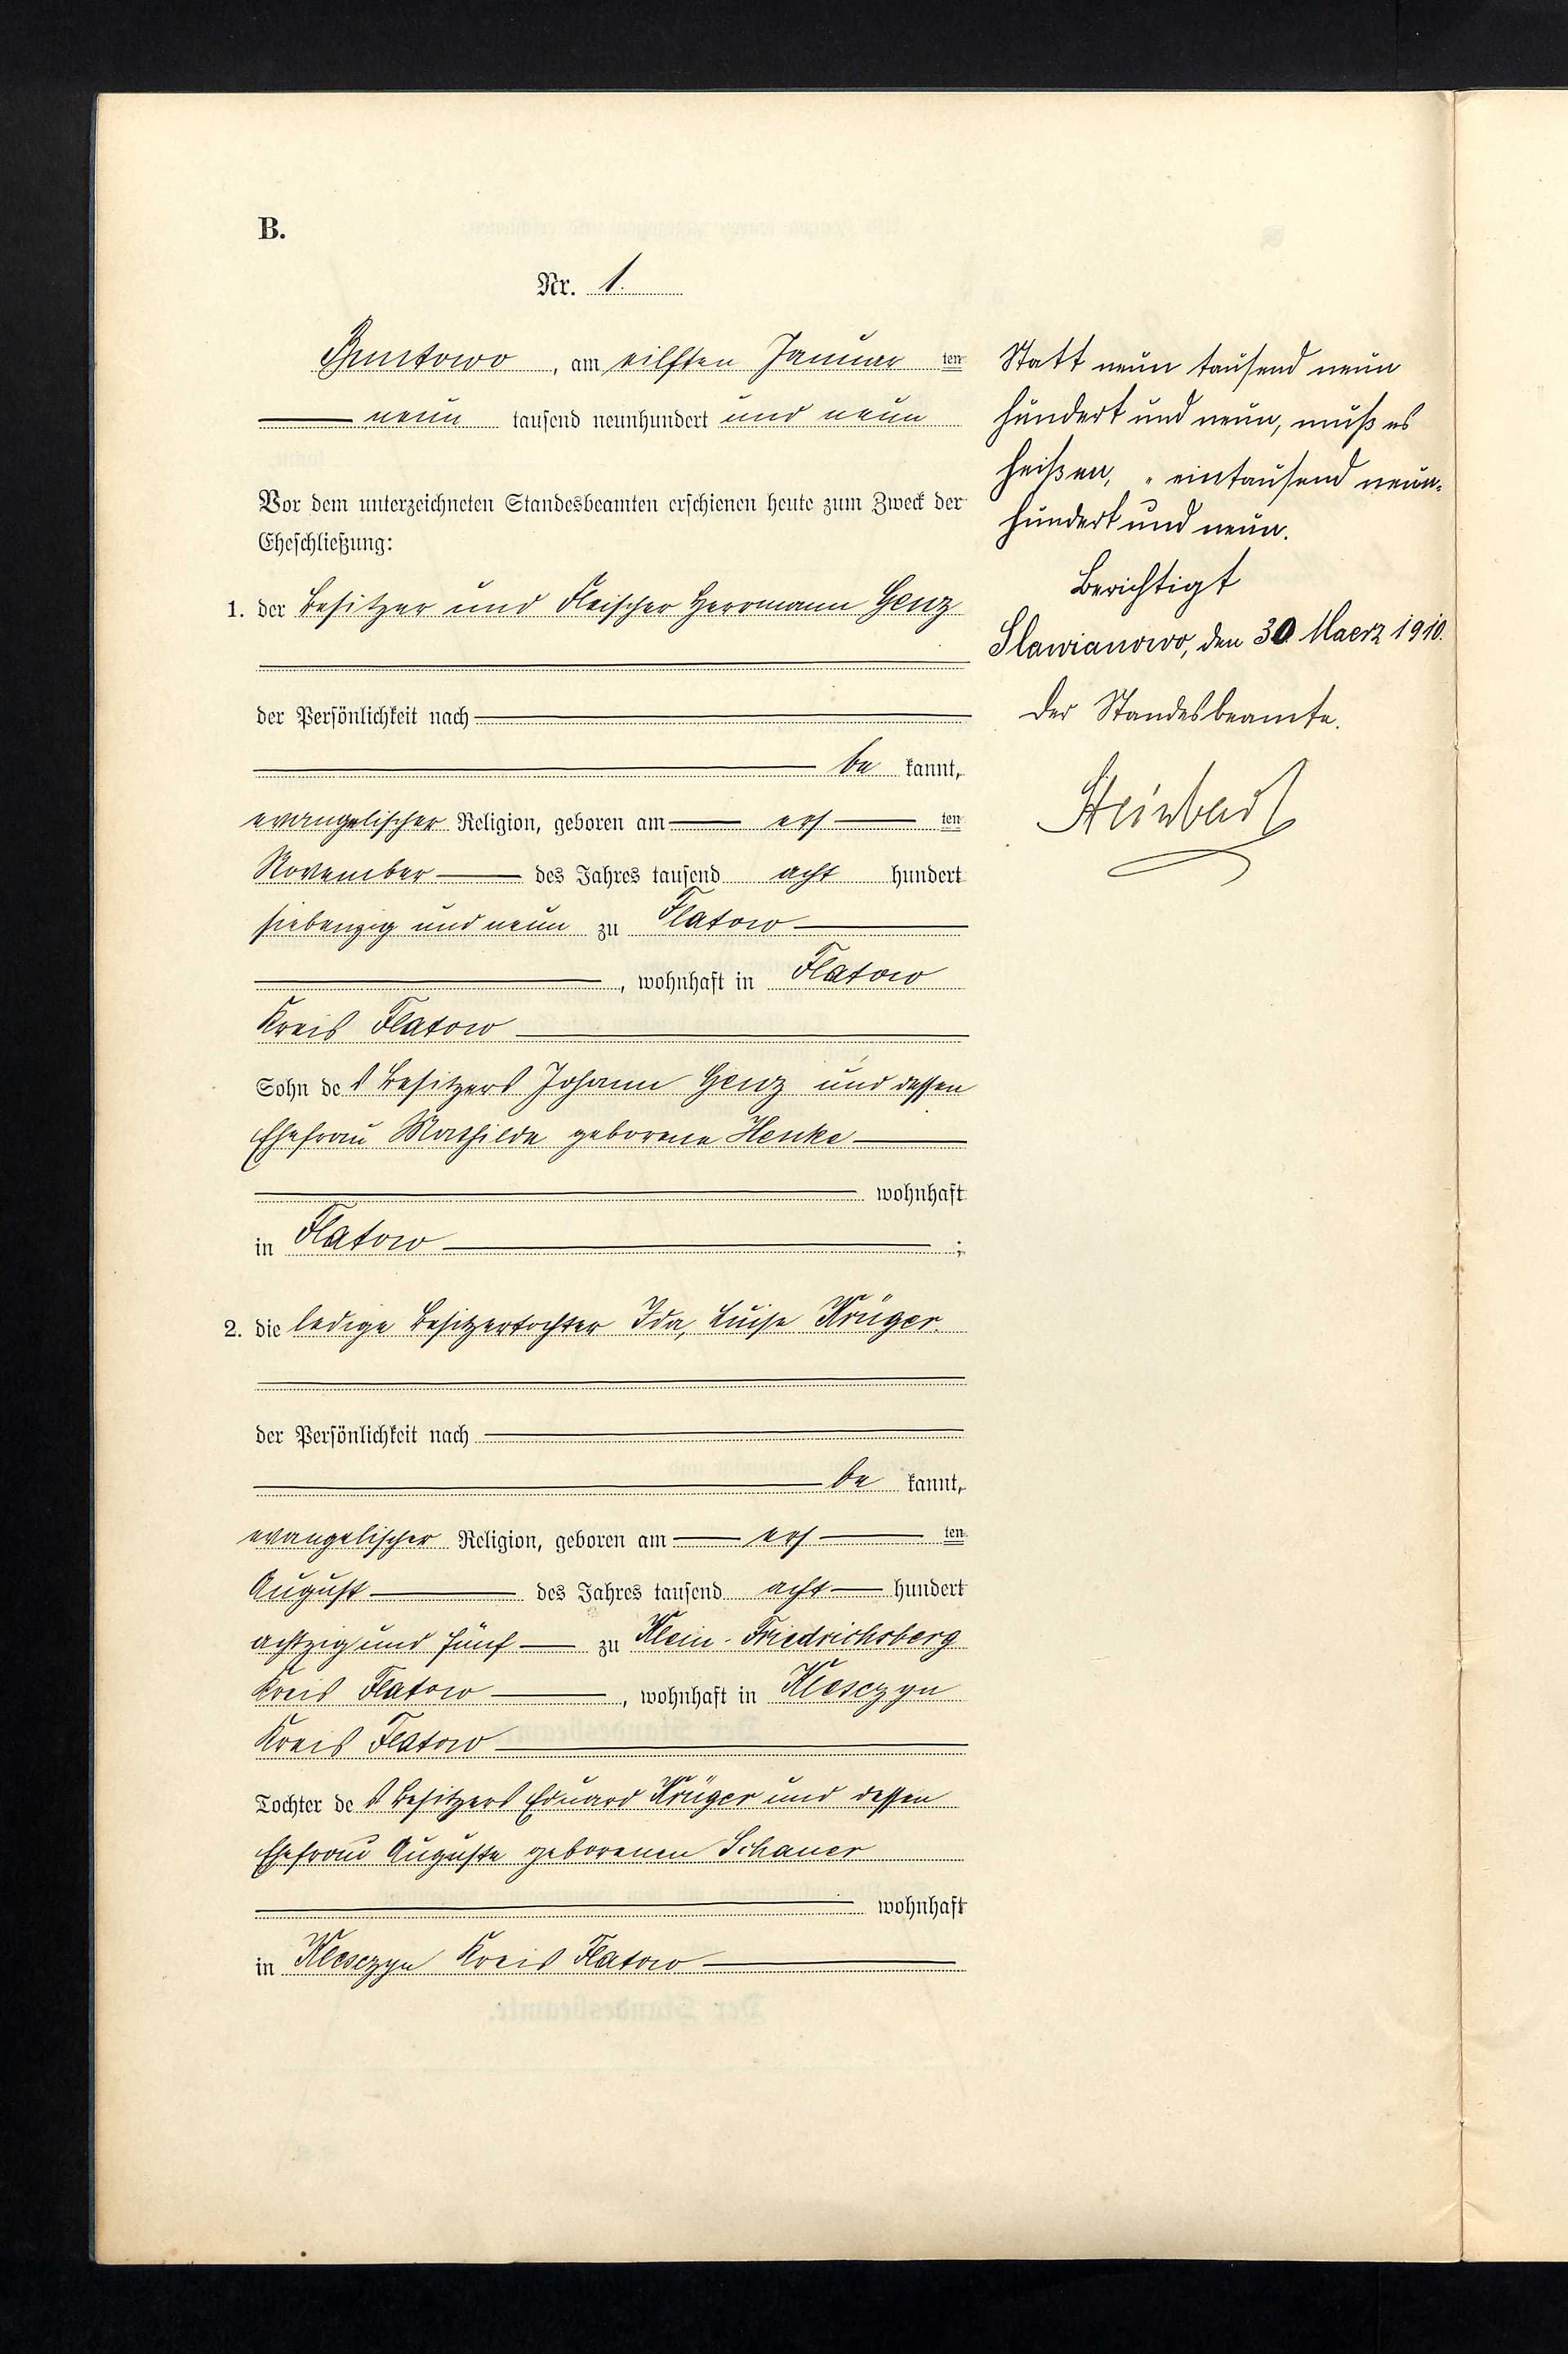 B.
Nr. 1.
Buntowo, am eilften Januar ten
neun tausend neunhundert und neun
Vor dem unterzeichneten Standesbeamten erschienen heute zum Zweck der
Eheschließung:
1. der Besitzer und Fleischer Herrmann Genz
der Persönlichkeit nach
be kannt,
evangelischer Religion, geboren am ers ten
November des Jahres tausend acht hundert
siebenzig und neun zu Flatow
, wohnhaft in Flatow
Kreis Flatow
Sohn des Besitzers Johann Genz und dessen
Ehefrau Mathilde geborene Henke
wohnhaft
in Flatow ;
2. die ledige Besitzertochter Ida, Luise Krüger.
der Persönlichkeit nach
be kannt,
evangelischer Religion, geboren am ers ten
August des Jahres tausend acht hundert
achtzig und fünf zu Klein-Friedrichsberg
Kreis Flatow, wohnhaft in Klesczyn
Kreis Flatow
Tochter des Besitzers Eduard Krüger und dessen
Ehefrau Auguste geborenen Schauer
wohnhaft
in Klesczyn Kreis Flatow
Statt neun tausend neun
hundert und neun, muß es
heißen, „ eintausend neun-
hundert und neun.
Berichtigt
Slawianowo, den 30. Maerz 1910.
Der Standesbeamte.